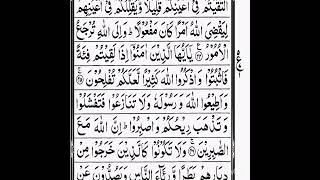 الْتَقَيْتُمْ فِيْۤ اَعْيُنِكُمْ قَلِيْلًا وَّيُقَلِّلُكُمْ فِيْۤ اَعْيُنِهِمْ
لِيَقْضِيَ اللّٰهُ اَمْرًا كَانَ مَفْعُوْلًا ؕ وَاِلَى اللّٰهِ تُرْجَعُ
الْاُمُوْرُ ۝ يٰۤاَيُّهَا الَّذِيْنَ اٰمَنُوْۤا اِذَا لَقِيْتُمْ فِئَةً
فَاثْبُتُوْا وَاذْكُرُوا اللّٰهَ كَثِيْرًا لَّعَلَّكُمْ تُفْلِحُوْنَ ۝
وَاَطِيْعُوا اللّٰهَ وَرَسُوْلَهٗ وَلَا تَنَازَعُوْا فَتَفْشَلُوْا
وَتَذْهَبَ رِيْحُكُمْ وَاصْبِرُوْا ؕ اِنَّ اللّٰهَ مَعَ
الصّٰبِرِيْنَ ۝ وَلَا تَكُوْنُوْا كَالَّذِيْنَ خَرَجُوْا مِنْ
دِيَارِهِمْ بَطَرًا وَّرِئَآءَ النَّاسِ وَيَصُدُّوْنَ عَنْ